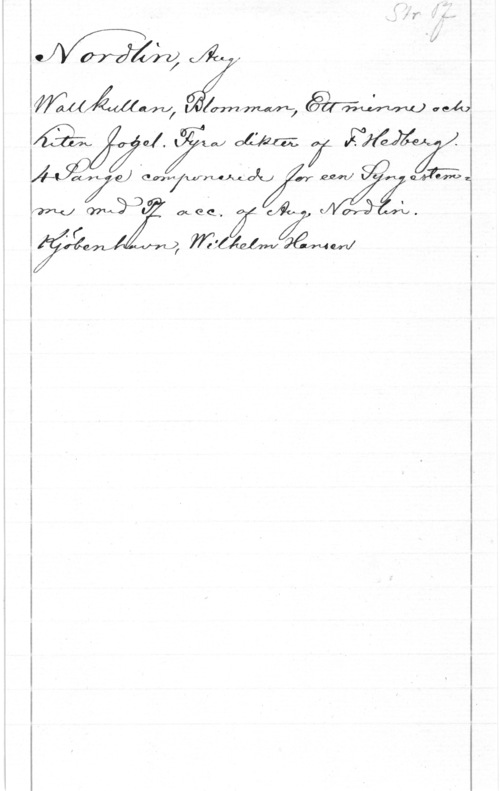 Str. Pf
Nordlin, Aug
Wallkullan, Blomman, Ett minne och
liten fogel. Fyra dikter af F. Hedberg.
4 Sange componerede for een Syngestem=
me med Pf acc. af Aug. Nordlin.
Kjöbenhavn, Wilhelm Hansen